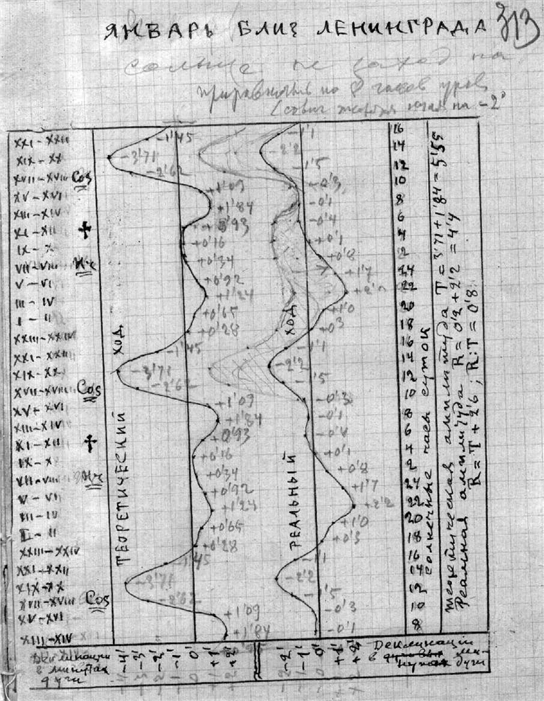 313
ЯНВАРЬ БЛИЗ ЛЕНИНГРАДА
солнце не заход на
на 8 часов
на -2°
XXI-XXII -1'45 -1'1 16
XIX-XX -3'71 -2'2 14
XVII-XVIII Cos -2'62 -1'5 12
+1'09 -0'3 10
XV-XVI +1'84 -0'1 8
XIII-XIV +0'93 -0'4 6
XI-XII +0'16 +0'1 4
IX-X +0'34 +0'8 2
VII-VIII +0'92 +1'7
V-VI +1'24 22
III-IV +0'65 +1'0
I-II +0'28 +0'3 18
XXIII-XXIV -1'45 -1'1 16
XXI-XXII -3'71 -2'2 14
XIX-XX -2'62 -1'5 12
XVII-XVIII Cos +1'09 -0'3 10
XV-XVI +1'84 -0'1 8
XIII-XIV +0'93 -0'4 6
XI-XII +0'16 +0'1 4
IX-X +0'34 +0'8 2
VII-VIII +0'92 +1'7
V-VI +1'24 22
III-IV +0'65 +1'0
I-II +0'28 +0'3 18
XXIII-XXIV -1'45 -1'1 16
XXI-XXII -3'71 -2'2 14
XIX-XX -2'62 -1'5 12
XVII-XVIII Cos +1'09 -0'3 10
XV-XVI +1'84 -0'1 8
XIII-XIV
ТЕОРЕТИЧЕСКИЙ ХОД
РЕАЛЬНЫЙ ХОД
солнечные часы суток
Теоретическая амплитуда T=3'71+1'84=5'55
Реальная амплитуда R=0'2+2'2=4'4
R=T+2'6; R:T=0'8
Деклинации
в минутах
дуги
-4' -3' -2' -1' 0' +1' +2'
-2' -1' 0' +1' +2'
Деклинации
в минутах дуги